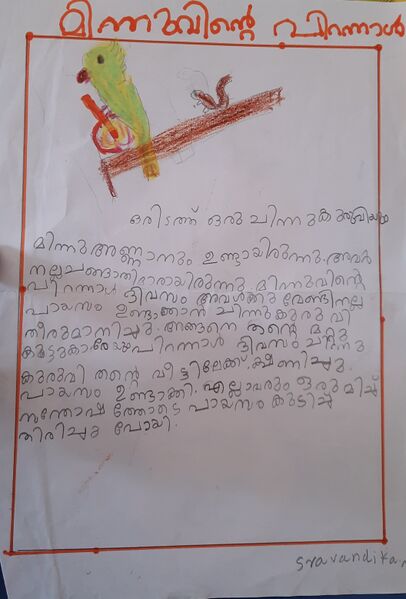 മിന്നുവിന്റെ പിറന്നാൾ
ഒരിടത്ത് ഒരു ചിന്നുകുരുവിയും
മിന്നുഅണ്ണാനും ഉണ്ടായിരുന്നു. അവർ
നല്ലചങ്ങാതിമാരായിരുന്നു. മിന്നുവിന്റെ
പിറന്നാൾ ദിവസം അവൾക്കു വേണ്ടിനല്ല
പായസം ഉണ്ടാക്കാൻ ചിന്നുകുരുവി
തീരുമാനിച്ചു. അങ്ങനെ തന്റെ മറ്റു
കൂട്ടുകാരേയുംപിറന്നാൾ ദിവസം ചിന്നു
കുരുവി തന്റെ വീട്ടിലേക്ക് ക്ഷണിച്ചു.
പായസം ഉണ്ടാക്കി. എല്ലാവരും ഒരുമിച്ച്
സന്തോഷത്തോടെ പായസം കുടിച്ച്
തിരിച്ചു പോയി.
Sravandika